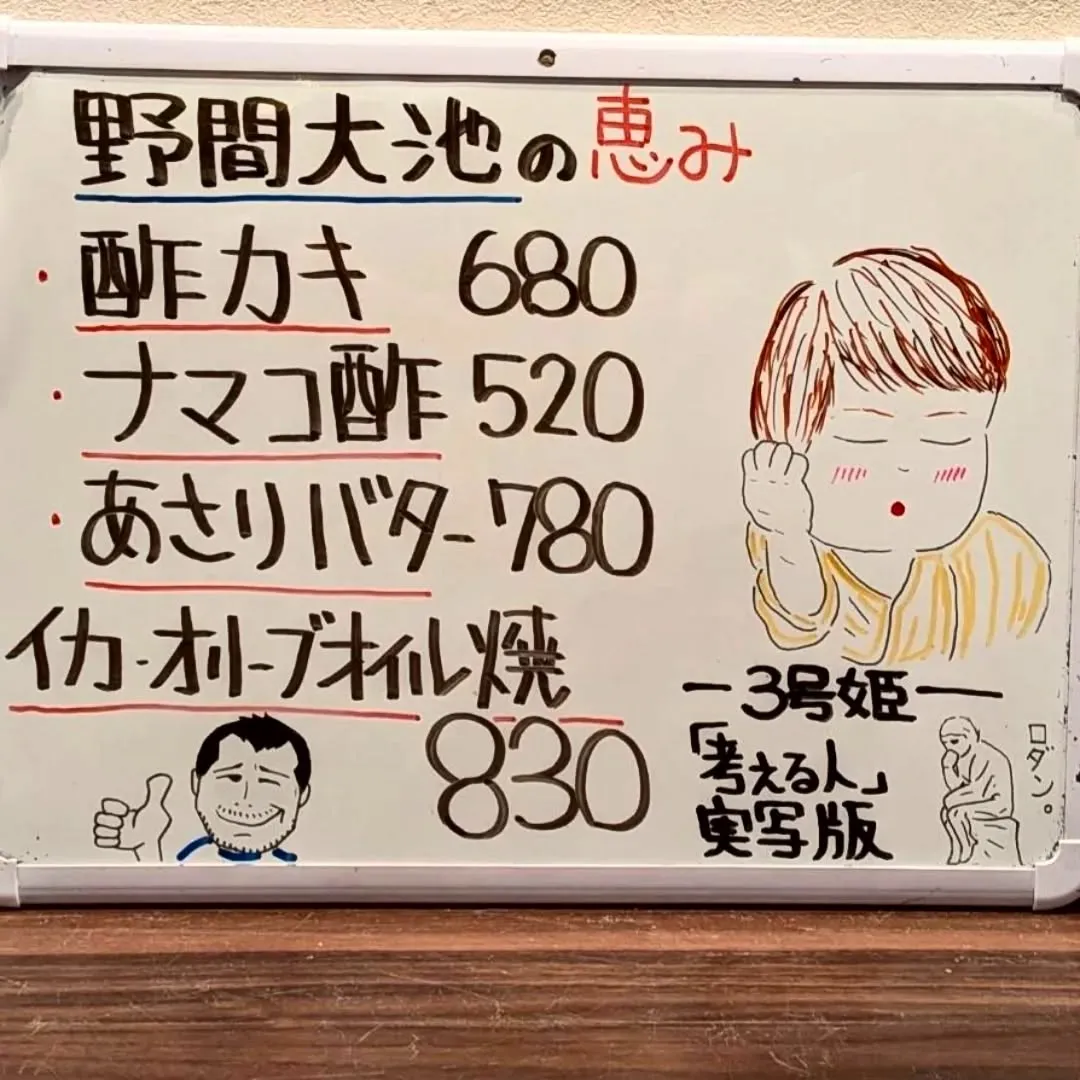 野間大池の恵み
・酢カキ 680
・ナマコ酢 520
・あさりバター 780
イカ・オリーブオイル焼
830
ー3号姫ー
「考える人」
実写版
ロダン。